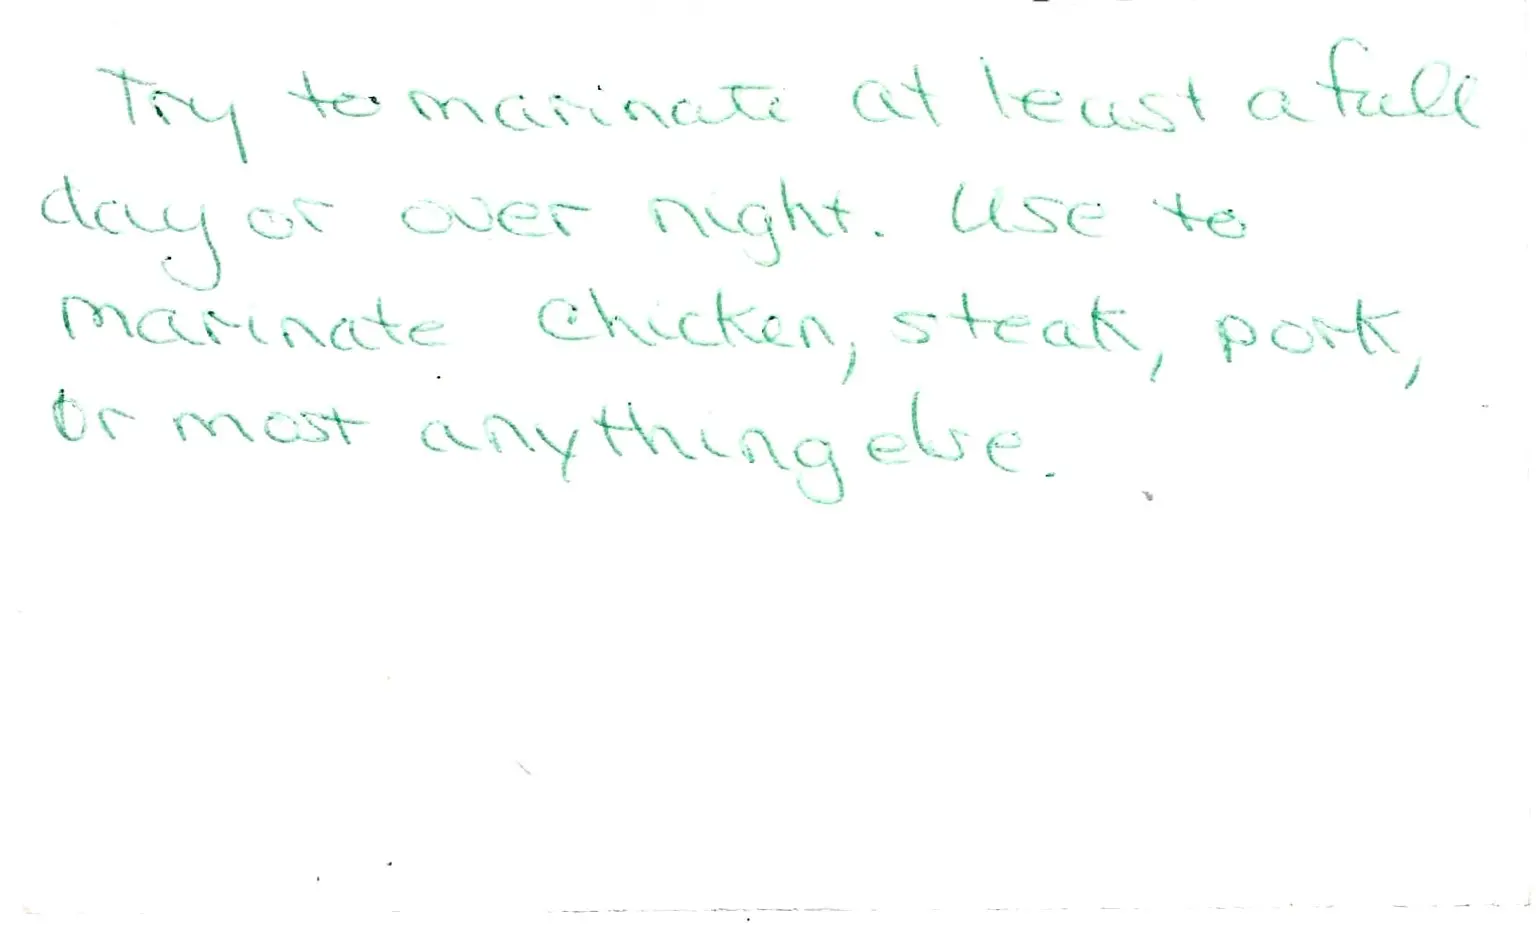 Try to marinate at least a full
day or over night. Use to
marinate chicken, steak, pork,
or most anything else.